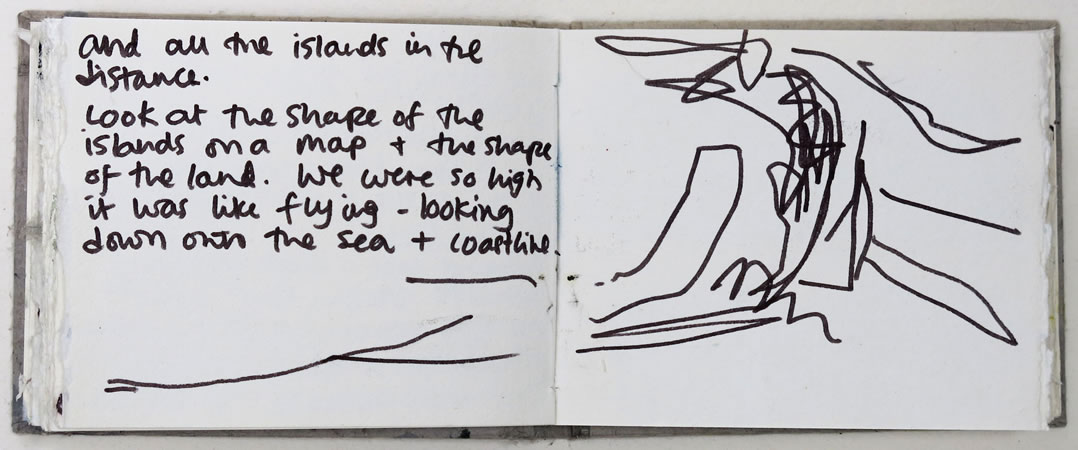 and all the islands in the
distance.
Look at the shape of the
islands on a map + the shape
of the land. We were so high
it was like flying - looking
down onto the sea + coastline.